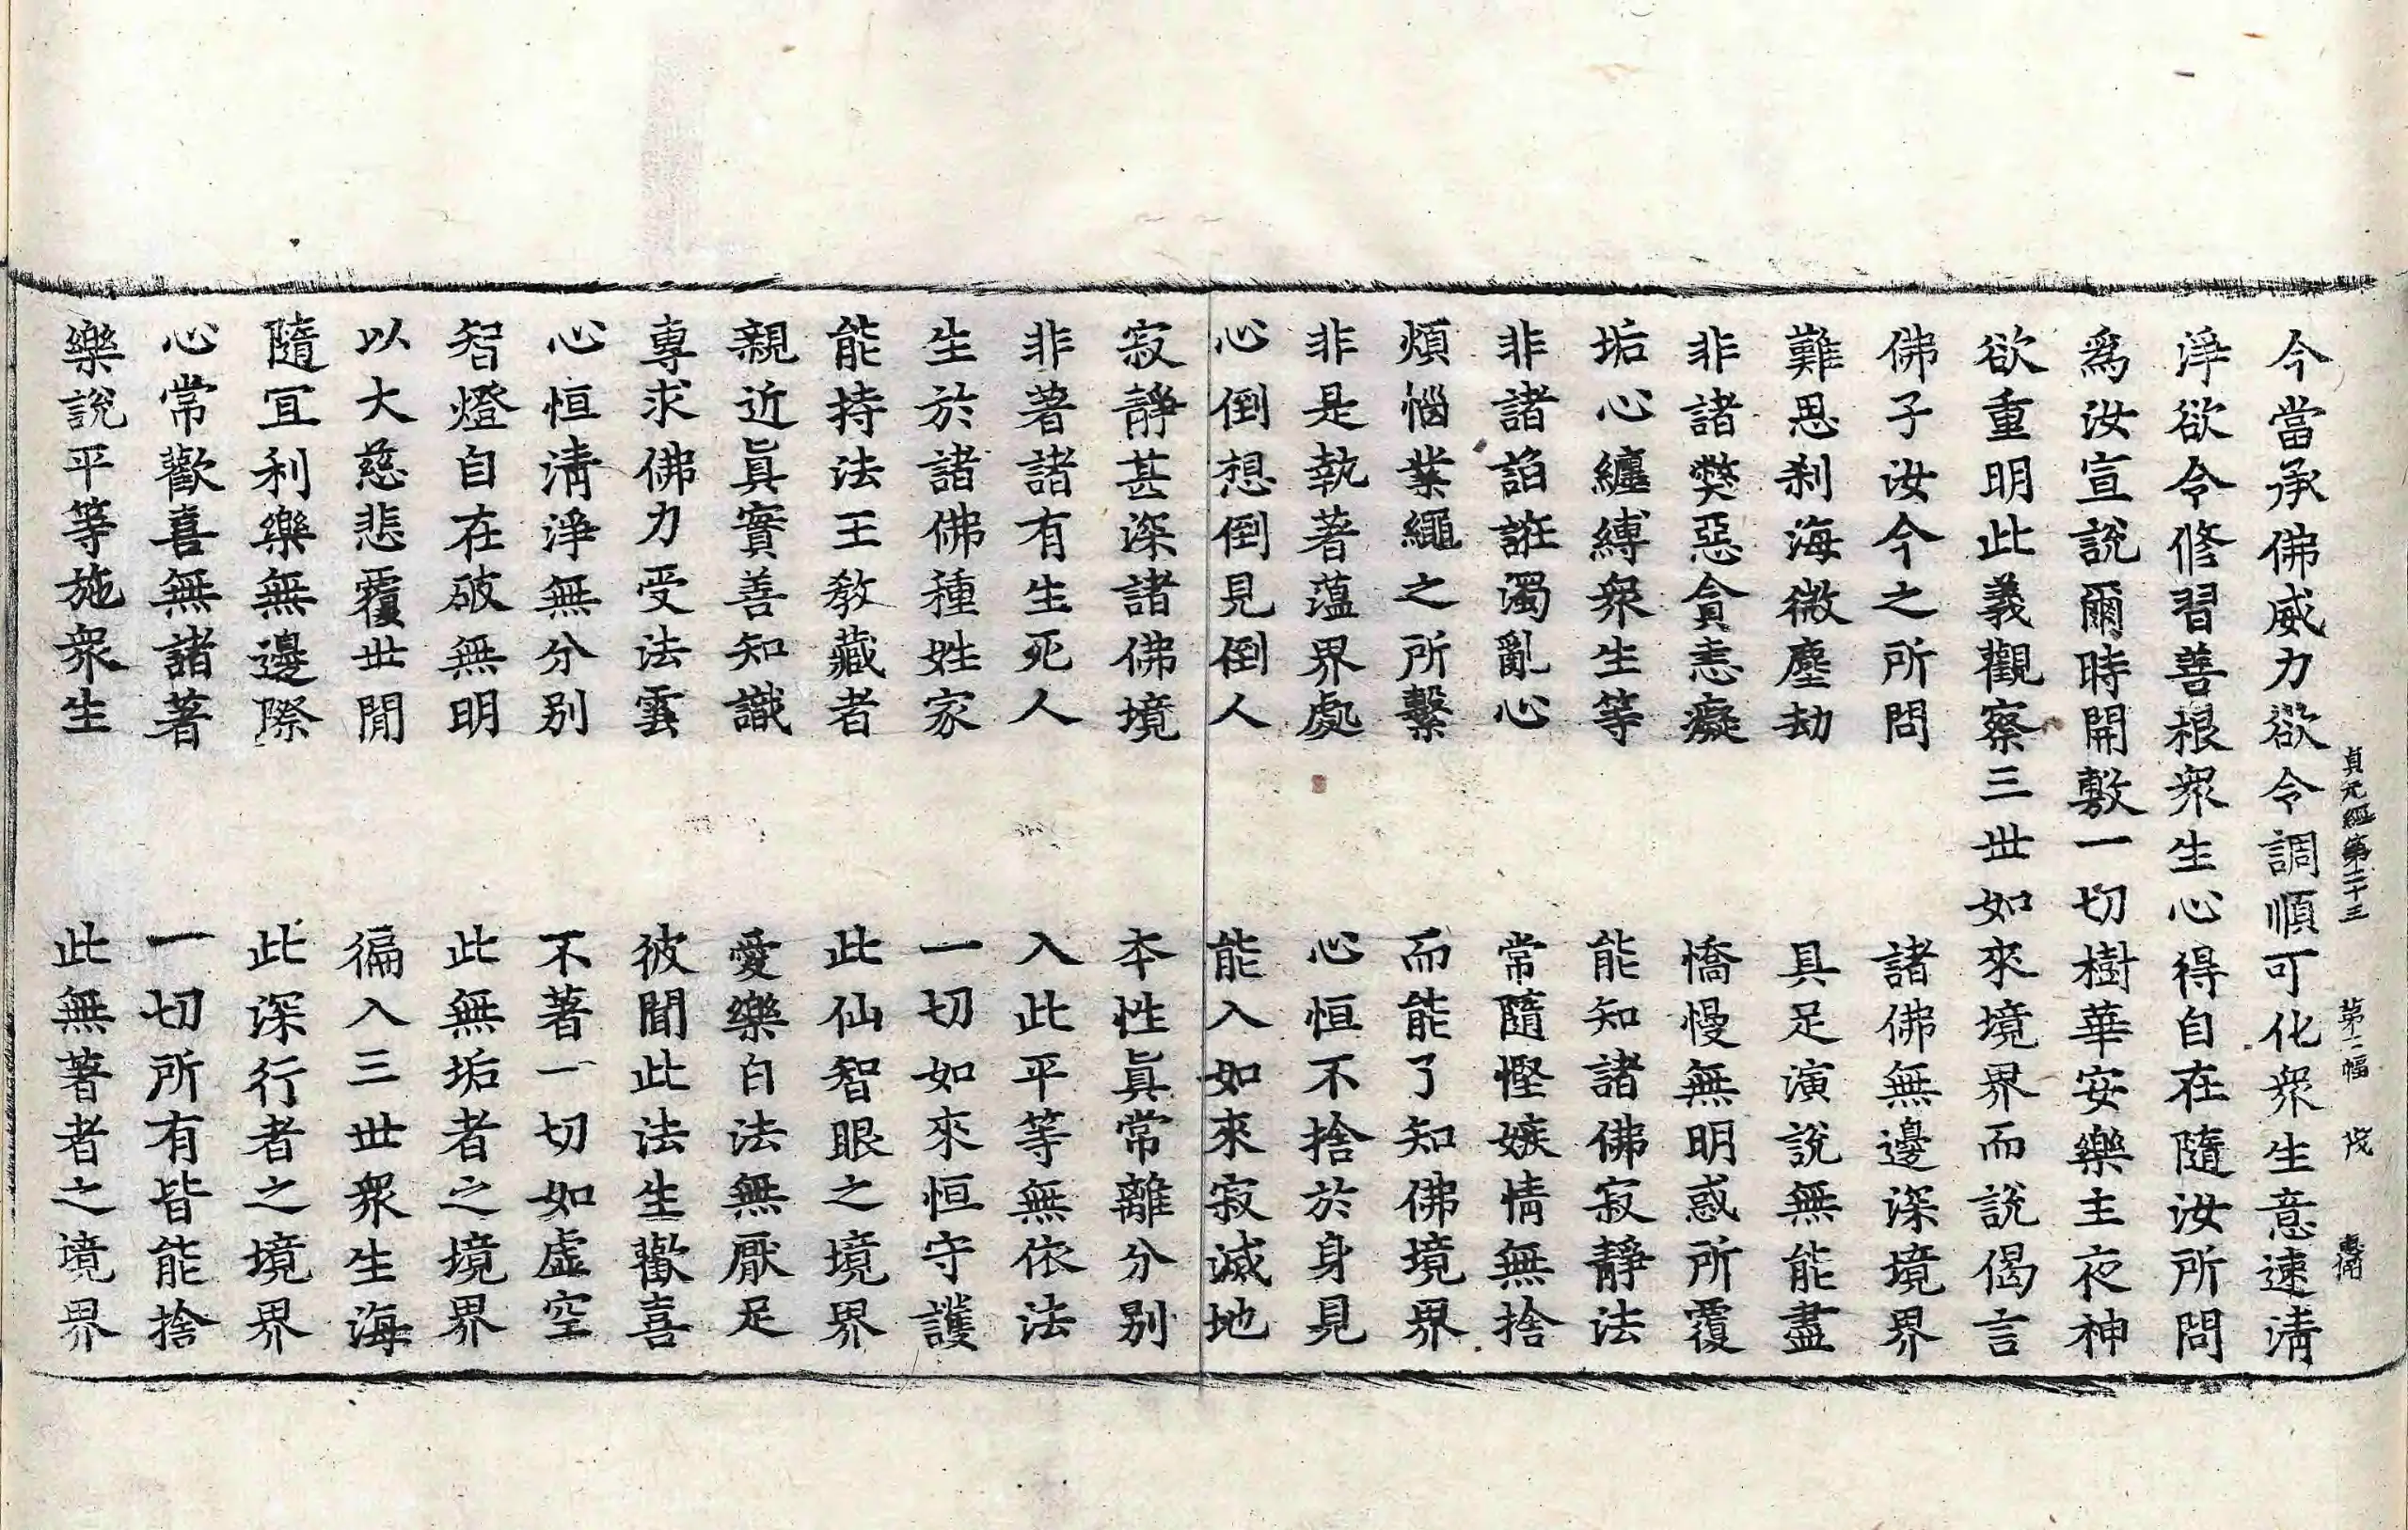 貞元經第二十三 第二幅
今當承佛威力欲令調順可化衆生意速淸
淨欲令修習善根衆生心得自在隨汝所問
爲汝宣說爾時開敷一切樹華安樂主夜神
欲重明此義觀察三世如來境界而說偈言
佛子汝今之所問 諸佛無邊深境界
難思刹海微塵劫 具足演說無能盡
非諸弊惡貪恚癡 憍慢無明惑所覆
垢心纏縛衆生等 能知諸佛寂靜法
非諸諂誑濁亂心 常隨慳嫉情無捨
煩惱業繩之所繫 而能了知佛境界
非是執著蘊界處 心恒不捨於身見
心倒想倒見倒人 能入如來寂滅地
寂靜甚深諸佛境 本性眞常離分別
非著諸有生死人 入此平等無依法
生於諸佛種姓家 一切如來恒守護
能持法王教藏者 此仙智眼之境界
親近眞實善知識 愛樂白法無厭足
專求佛力受法雲 彼聞此法生歡喜
心恒淸淨無分別 不著一切如虛空
智燈自在破無明 此無垢者之境界
以大慈悲覆世閒 徧入三世衆生海
隨冝利樂無邊際 此深行者之境界
心常歡喜無諸著 一切所有皆能捨
樂說平等施衆生 此無著者之境界